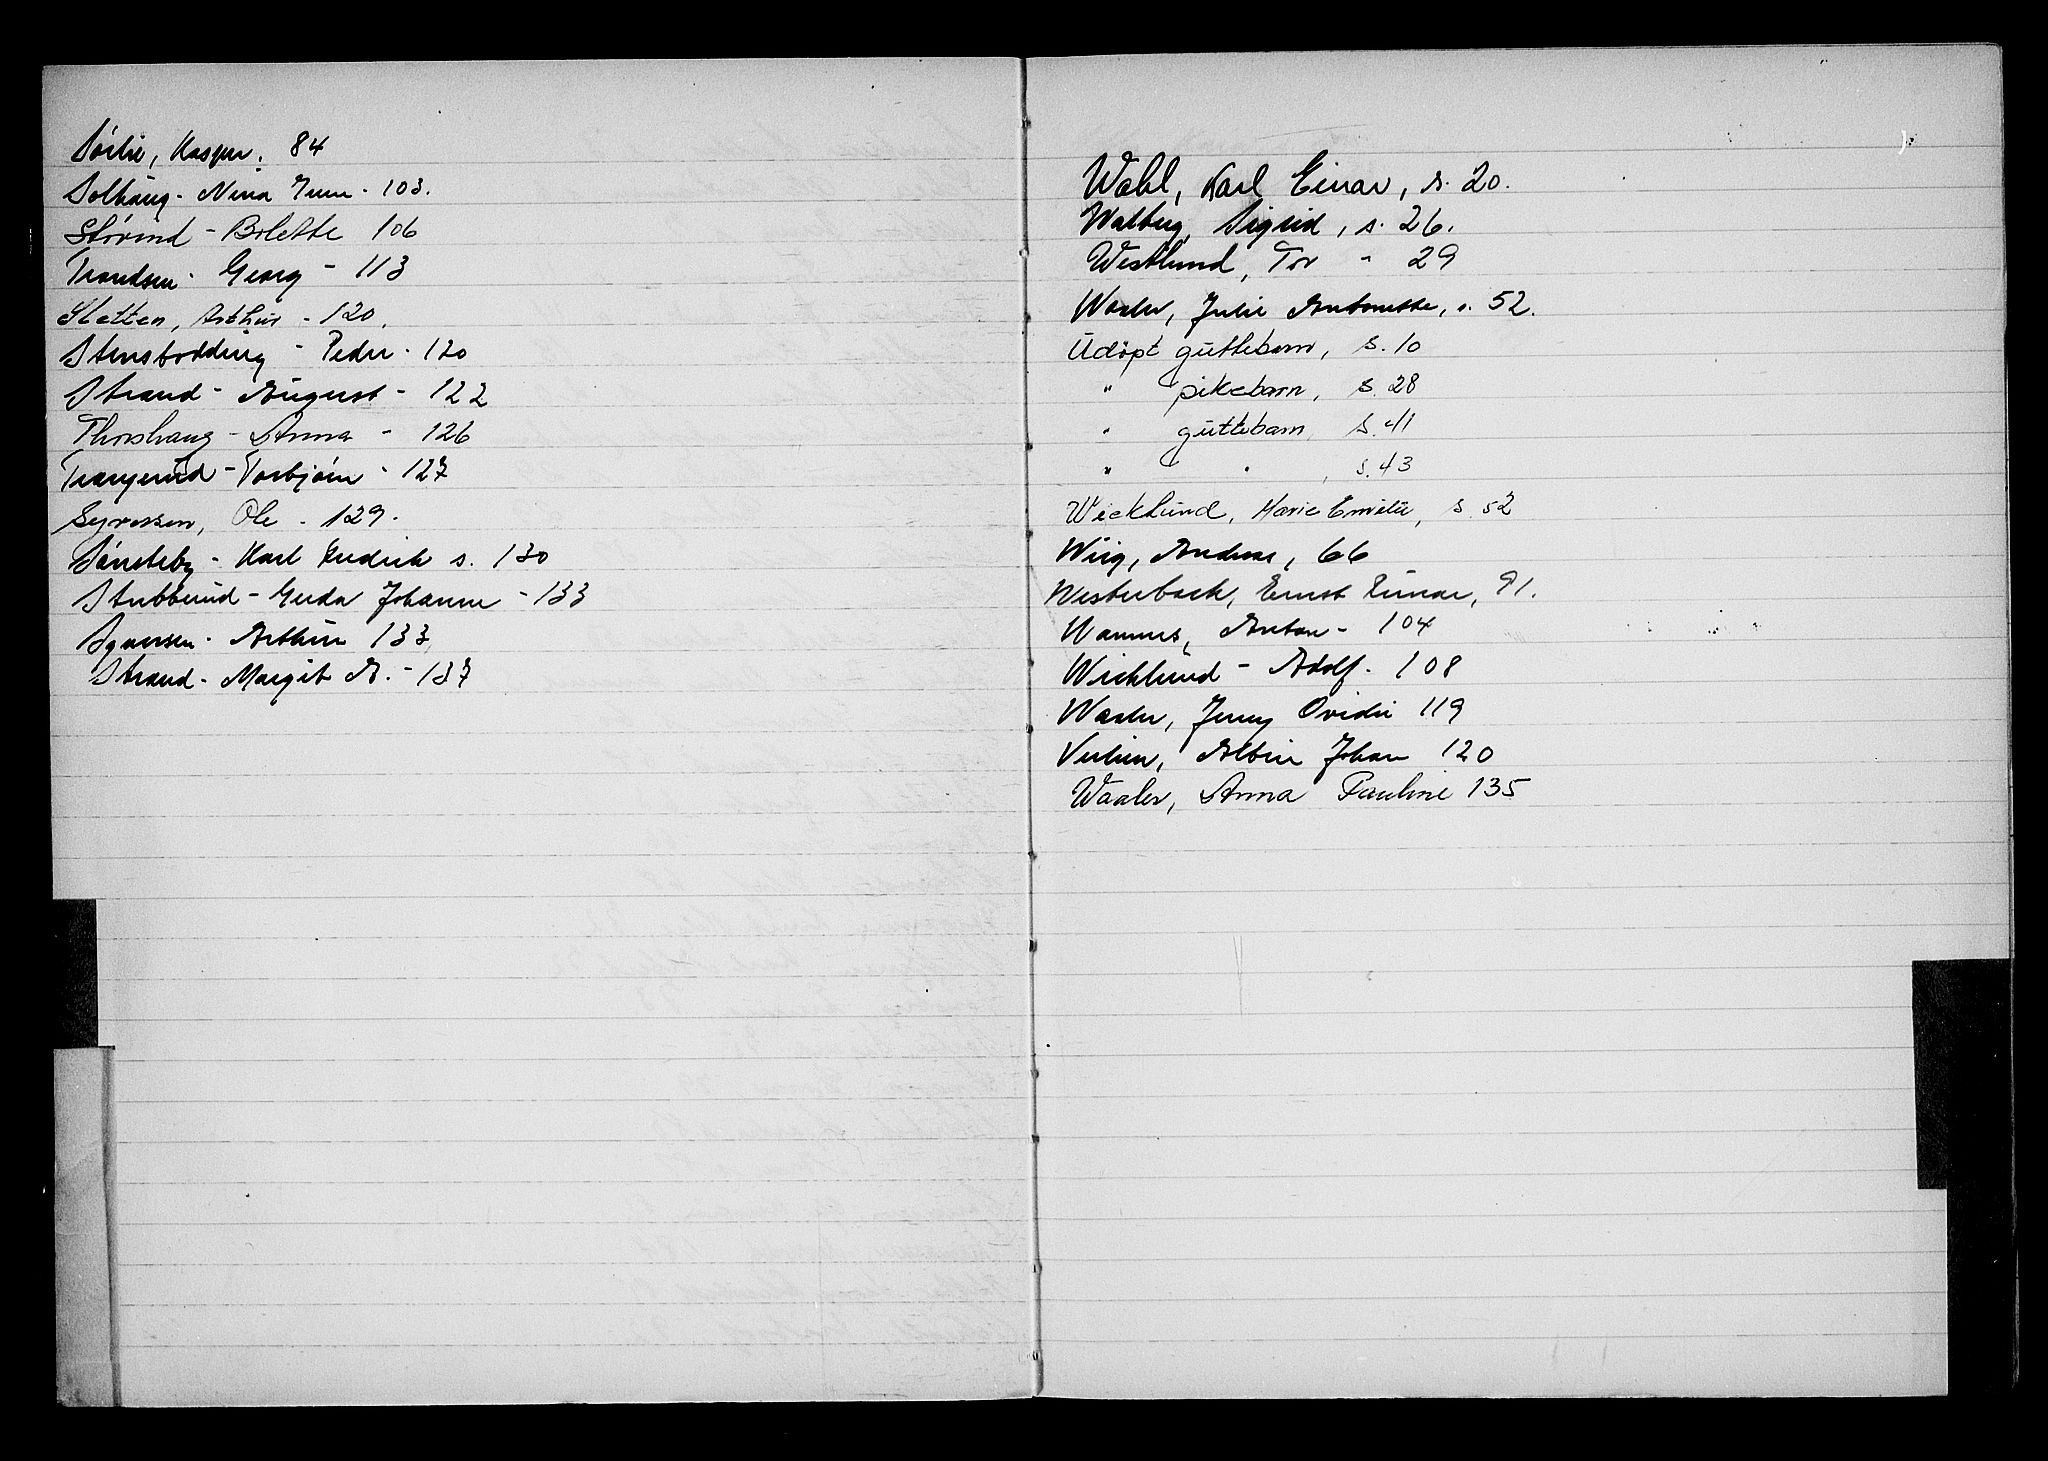 Sörlie, Kasper. 84
Solhaug - Nina Irene - 103.
Störind - Bolette 106
Trondsen - Georg - 113
Sletten, Arthur - 120.
Stensbodding - Peder - 120
Strand - August - 122
Thorshaug - Anna - 126
Trangerud - Torbjörn - 127
Syversen, Ole - 129.
Sönsteby - Karl Fredrik s. 130
Stubberud - Gerda Johanne - 133
Syversen - Arthur 133
Strand - Margit A. - 137
Wahl, Karl Einar, s. 20.
Walberg, Sigrid, s. 26.
Westlund, Tor - 29
Waaler, Julie Antonette, s. 52.
Udöpt guttebarn, s. 10
" pikebarn, s. 28
" guttebarn, s. 41
" " , s. 43
Wicklund, Marie Emilie, s. 52
Wiig, Andreas, 66
Westerback, Ernst Runar, 91.
Wannes, Anton - 104
Wicklund - Adolf - 108
Waaler, Jenny Ovidie 119
Albin Johan 120
Waaler, Anna Pauline 135